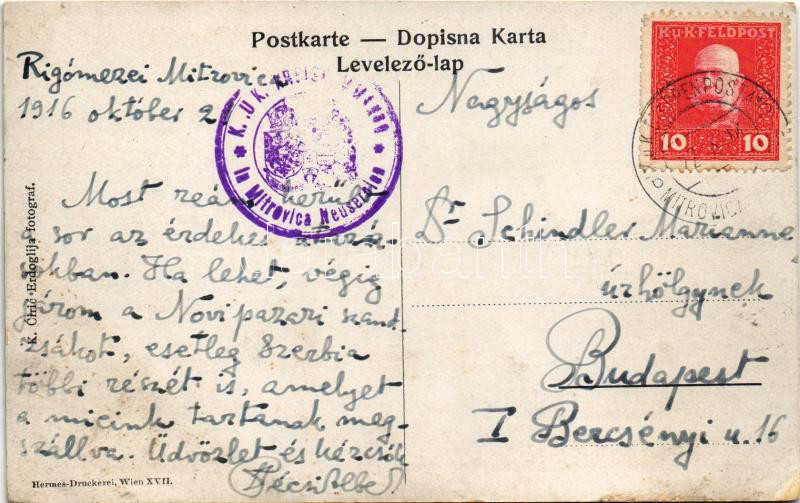 Postkarte — Dopisna Karta
Levelező-lap
Rigómezei Mitrovica
1916 október 2
K.U.K. KREISKOMMANDO
in Mitrovica Neuserbien
K.u.K. FELDPOST
10 10
K.u.K. ETAPPENPOSTAMT
MITROVICA
Most reám került
a sor az érdekes utazá-
sokban. Ha lehet, végig
járom a Novipazari szand-
zsákot, esetleg Szerbia
többi részét is, amelyet
a mieink tartanak meg-
szállva. Üdvözlet és kézcsók
Pécsi Albert
Nagyságos
Dr Schindler Marianne
úrhölgynek
Budapest
I Bercsényi u. 16
K. Ćirić-Erdoglija fotograf.
Hermes-Druckerei, Wien XVII.